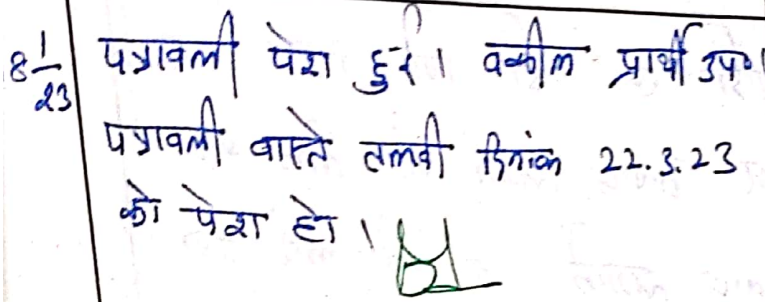 8 1/23 पत्रावली पेश हुई। वकील प्रार्थी उप०।
पत्रावली वास्ते तलबी दिनांक 22.3.23
को पेश हो।